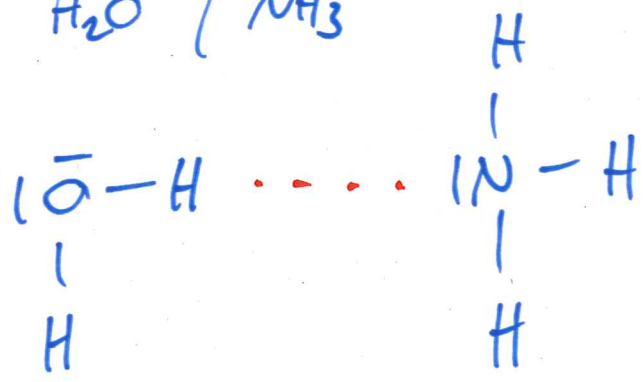 H2O / NH3
H
|
|O̅–H .... |N–H
| |
H H